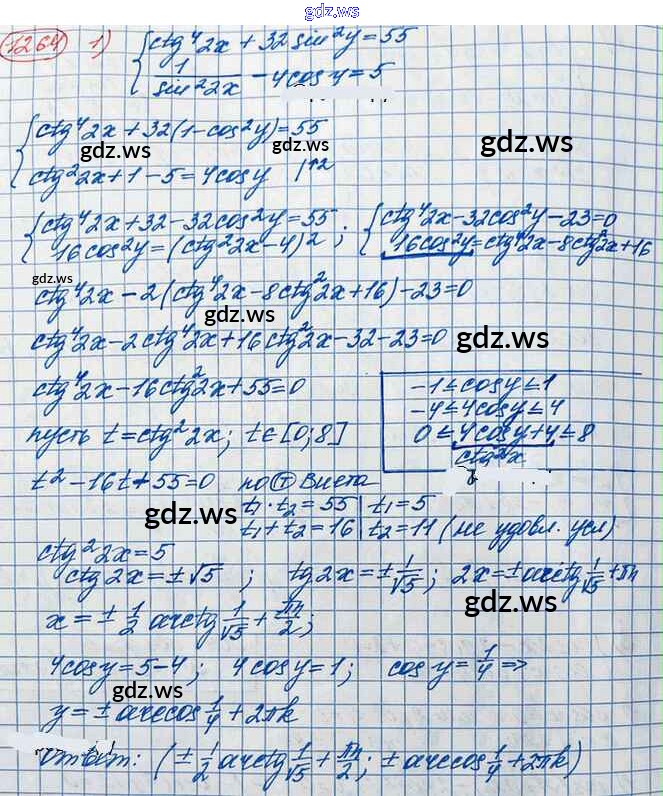 gdz.ws
1264 1) { ctg⁴2x + 32 sin²y = 55
1/sin²2x - 4cosy = 5
{ ctg⁴2x + 32(1-cos²y) = 55
gdz.ws gdz.ws gdz.ws
ctg²2x + 1 - 5 = 4cosy |↑2
{ ctg⁴2x + 32 - 32cos²y = 55 ; { ctg⁴2x - 32cos²y - 23 = 0
16cos²y = (ctg²2x - 4)² 16cos²y = ctg⁴2x - 8ctg²2x + 16
gdz.ws
ctg⁴2x - 2(ctg⁴2x - 8ctg²2x + 16) - 23 = 0
gdz.ws
ctg⁴2x - 2ctg⁴2x + 16ctg²2x - 32 - 23 = 0
gdz.ws
ctg⁴2x - 16ctg²2x + 55 = 0
-1 ≤ cosy ≤ 1
-4 ≤ 4cosy ≤ 4
0 ≤ 4cosy + 4 ≤ 8
ctg²2x
пусть t = ctg²2x; t ∈ [0; 8]
t² - 16t + 55 = 0 по Т Виета
gdz.ws
t₁ · t₂ = 55 | t₁ = 5
t₁ + t₂ = 16 | t₂ = 11 (не удовл. усл)
ctg²2x = 5
ctg2x = ±√5 ; tg2x = ± 1/√5 ; 2x = ± arctg 1/√5 + πn
gdz.ws
x = ± 1/2 arctg 1/√5 + πn/2 ;
4cosy = 5 - 4 ; 4cosy = 1 ; cosy = 1/4 ⇒
gdz.ws
y = ± arccos 1/4 + 2πk
Ответ: (± 1/2 arctg 1/√5 + πn/2 ; ± arccos 1/4 + 2πk)
gdz.ws